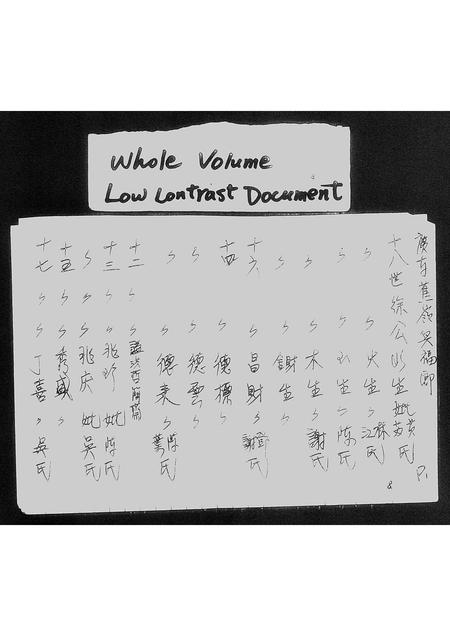 Whole Volume
Low Contrast Document
廣東蕉嶺吳福郎
P1
十八世徐公 生妣黃氏
〃 〃 火生 〃 江 氏
〃 〃 生 〃 陳氏
〃 〃 木生 〃 謝氏
〃 〃 生 〃
十六 〃 〃 昌財 〃 氏
十四 〃 〃 德標 〃
〃 〃 〃 德雲 〃
〃 〃 〃 德來 〃 陳 葉 氏
十二 〃
十三 〃 〃 兆珍 妣陳氏
〃 〃 〃 兆庆 妣吳氏
十五 〃 〃 秀盛
十七 〃 〃 丁喜 〃 吳氏
8